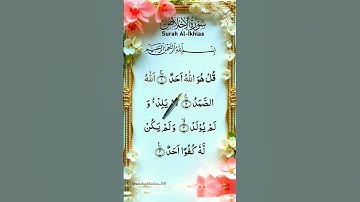 سورة الإخلاص
Surah Al-Ikhlas
بِسْمِ اللهِ الرَّحْمٰنِ الرَّحِيْمِ
قُلْ هُوَ اللهُ اَحَدٌ ۚ اَللهُ
الصَّمَدُ ۚ لَمْ يَلِدْ ۙ وَ
لَمْ يُوْلَدْ ۙ وَلَمْ يَكُنْ
لَّهٗ كُفُوًا اَحَدٌ